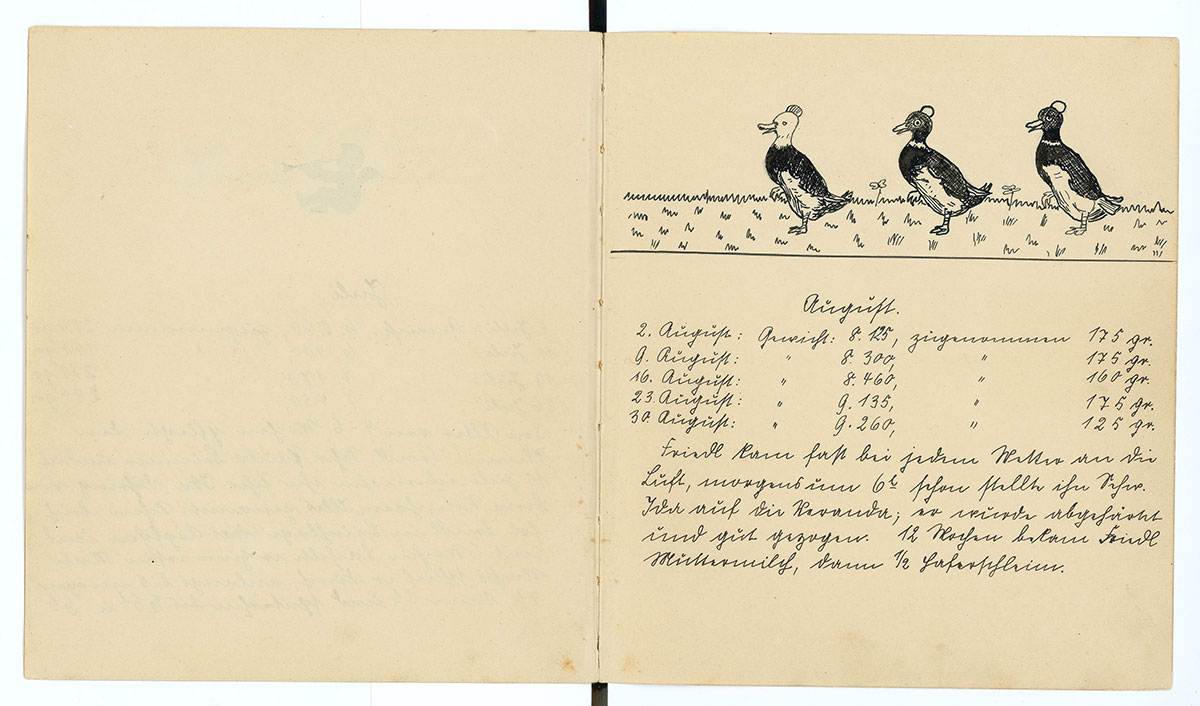 August.
2. August: Gewicht: 8.125, zugenommen 175 gr.
9. August: " 8.300, " 175 gr.
16. August: " 8.460, " 160 gr.
23. August: " 9.135, " 175 gr.
30. August: " 9.260, " 125 gr.
Friedl kam fast bei jedem Wetter an die
Luft, morgens um 6h schon stellte ihn Schw.
Ida auf die Veranda; er wurde abgehärtet
und gut gezogen. 12 Wochen bekam Friedl
Muttermilch, dann 1/2 Haferschleim.